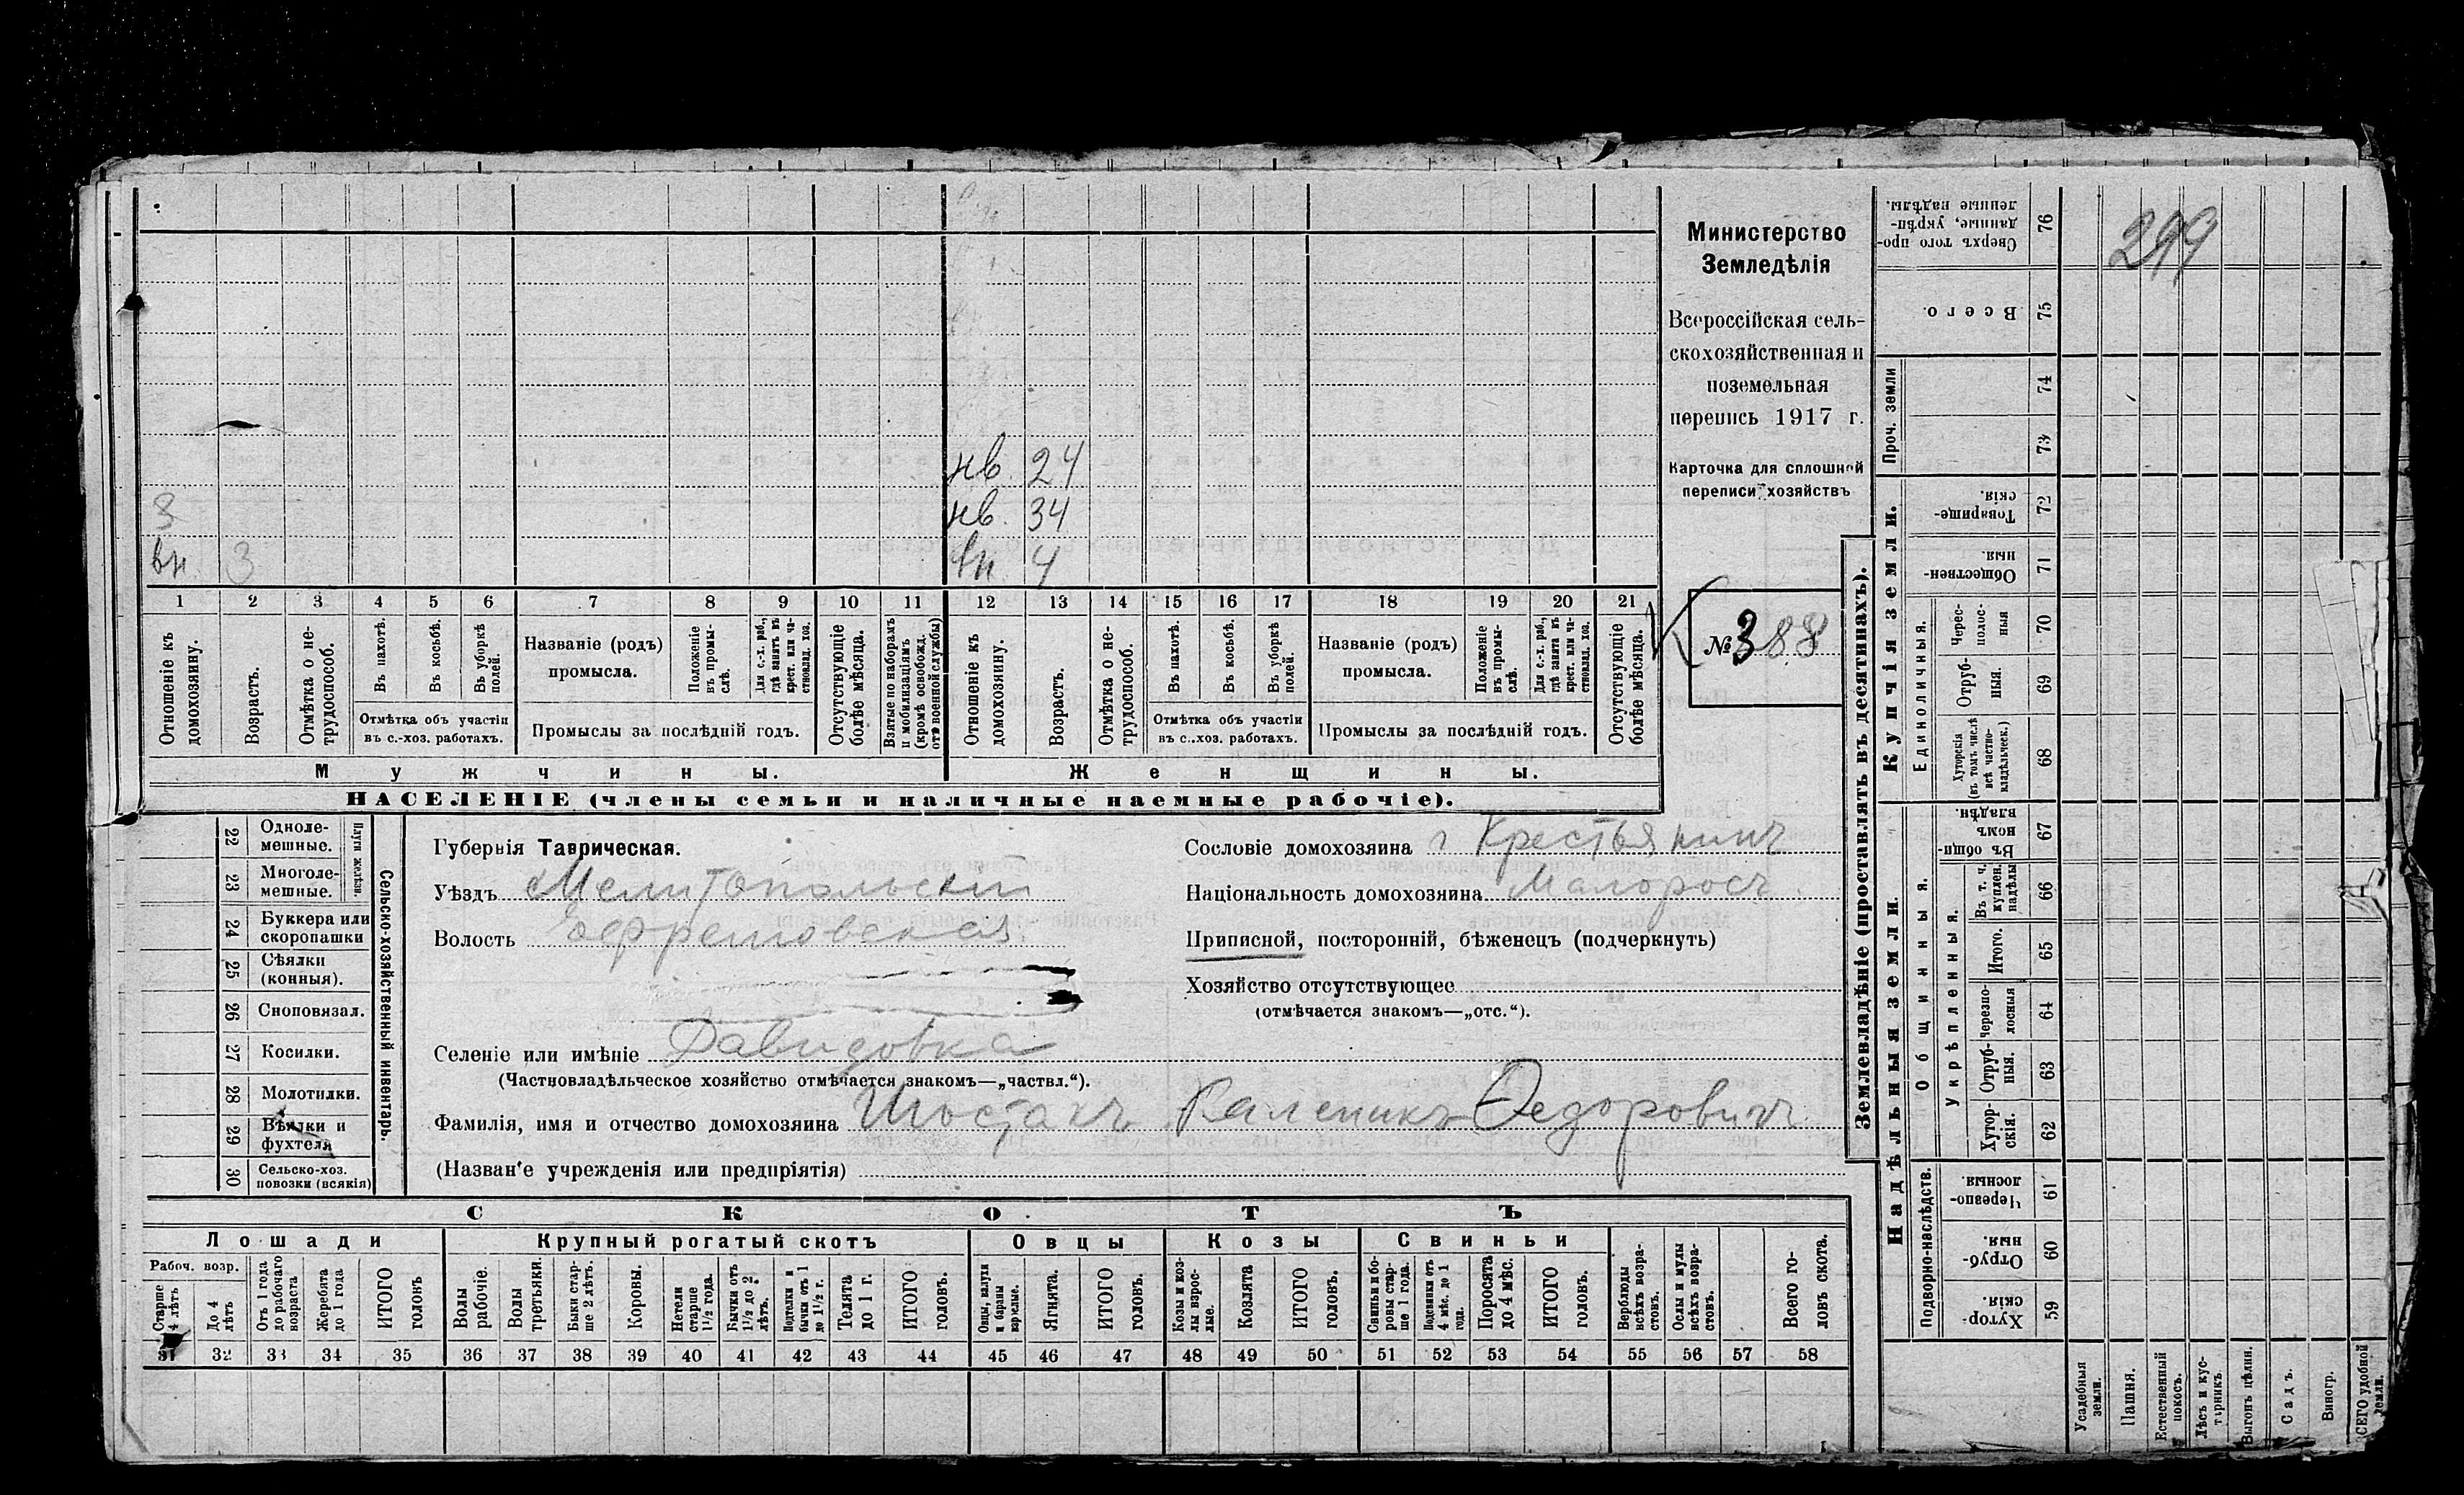 нв. 24
нв. 34
З
вн. 3 вн. 4
1 2 3 4 5 6 7 8 9 10 11 12 13 14 15 16 17 18 19 20 21
Отношеніе къ домохозяину.
Возрастъ.
Отмѣтка о нетрудоспособ.
Въ пахотѣ.
Въ косьбѣ.
Въ уборкѣ полей.
Отмѣтка объ участіи
въ с.-хоз. работахъ.
Названіе (родъ)
промысла.
Положеніе въ промыслѣ.
Для с.-х. раб., гдѣ занятъ въ крест. или частновлад. хоз.
Промыслы за послѣдній годъ.
Отсутствующіе болѣе мѣсяца.
Взятые по наборамъ и мобилизаціямъ (кромѣ освобожд. отъ военной службы)
Отношеніе къ домохозяину.
Возрастъ.
Отмѣтка о нетрудоспособ.
Въ пахотѣ.
Въ косьбѣ.
Въ уборкѣ полей.
Отмѣтка объ участіи
въ с.-хоз. работахъ.
Названіе (родъ)
промысла.
Положеніе въ промыслѣ.
Для с.-х. раб., гдѣ занята въ крест. или частновлад. хоз.
Промыслы за послѣдній годъ.
Отсутствующіе болѣе мѣсяца.
Мужчины. Женщины.
НАСЕЛЕНІЕ (члены семьи и наличные наемные рабочіе).
Министерство
Земледѣлія
Всероссійская сель-
скохозяйственная и
поземельная
перепись 1917 г.
Карточка для сплошной
переписи хозяйствъ
№ 388
22 Одноле-
мешные.
23 Многоле-
мешные.
Плуги желѣзн.
24 Буккера или
скоропашки
25 Сѣялки
(конныя).
26 Сноповязал.
27 Косилки.
28 Молотилки.
29 Вѣялки и
фухтеля
30 Сельско-хоз.
повозки (всякія)
Сельско-хозяйственный инвентарь.
Губернія Таврическая.
Уѣздъ Мелитопольскій
Волость Ефремовская
Селеніе или имѣніе Давидовка
(Частновладѣльческое хозяйство отмѣчается знакомъ—„частвл.“).
Фамилія, имя и отчество домохозяина Шостакъ Каленикъ Ѳедоровичъ
(Названіе учрежденія или предпріятія)
Сословіе домохозяина Крестьянинъ
Національность домохозяина Малоросъ
Приписной, посторонній, бѣженецъ (подчеркнуть)
Хозяйство отсутствующее
(отмѣчается знакомъ—„отс.“).
СКОТЪ
Лошади Крупный рогатый скотъ Овцы Козы Свиньи
Рабоч. возр.
Старше 4 лѣтъ
До 4 лѣтъ
Отъ 1 года до рабочаго возраста
Жеребята до 1 года
ИТОГО головъ
Волы рабочіе.
Волы третьяки.
Быки старше 2 лѣтъ.
Коровы.
Нетели старше 1½ года.
Бычки отъ 1½ до 2 лѣтъ.
Подтелки и бычки отъ 1 до 1½ г.
Телята до 1 г.
ИТОГО головъ.
Овцы, валухи и бараны взрослые.
Ягнята.
ИТОГО головъ.
Козы и козлы взрослые.
Козлята
ИТОГО головъ.
Свиньи и боровы старше 1 года.
Подсвинки отъ 4 мѣс. до 1 года.
Поросята до 4 мѣс.
ИТОГО головъ.
Верблюды всѣхъ возрастовъ.
Ослы и мулы всѣхъ возрастовъ.
Всего головъ скота.
31 32 33 34 35 36 37 38 39 40 41 42 43 44 45 46 47 48 49 50 51 52 53 54 55 56 57 58
Землевладѣніе (проставлять въ десятинахъ).
Надѣльныя земли. Купчія земли. Проч. земли
Подворно-наслѣдств. Общинныя. Укрѣпленныя. Единоличныя.
Сверхъ того проданные, укрѣпленные надѣлы. 76
299
Всего. 75
74
73
Товарищескія. 72
Общественныя. 71
Чересполосныя 70
Отрубныя. 69
Хуторскія (въ томъ числѣ всѣ частновладѣльческ.) 68
Въ общинномъ владѣн. 67
Въ т. ч. куплен. надѣлы 66
Итого. 65
Черезполосныя 64
Отрубныя. 63
Хуторскія. 62
Черезполосныя. 61
Отрубныя. 60
Хуторскія. 59
Усадебныя земли.
Пашня.
Естественный покосъ.
Лѣсъ и кустарникъ.
Выгонъ цѣлин.
Садъ.
Виногр.
ВСЕГО удобной земли.